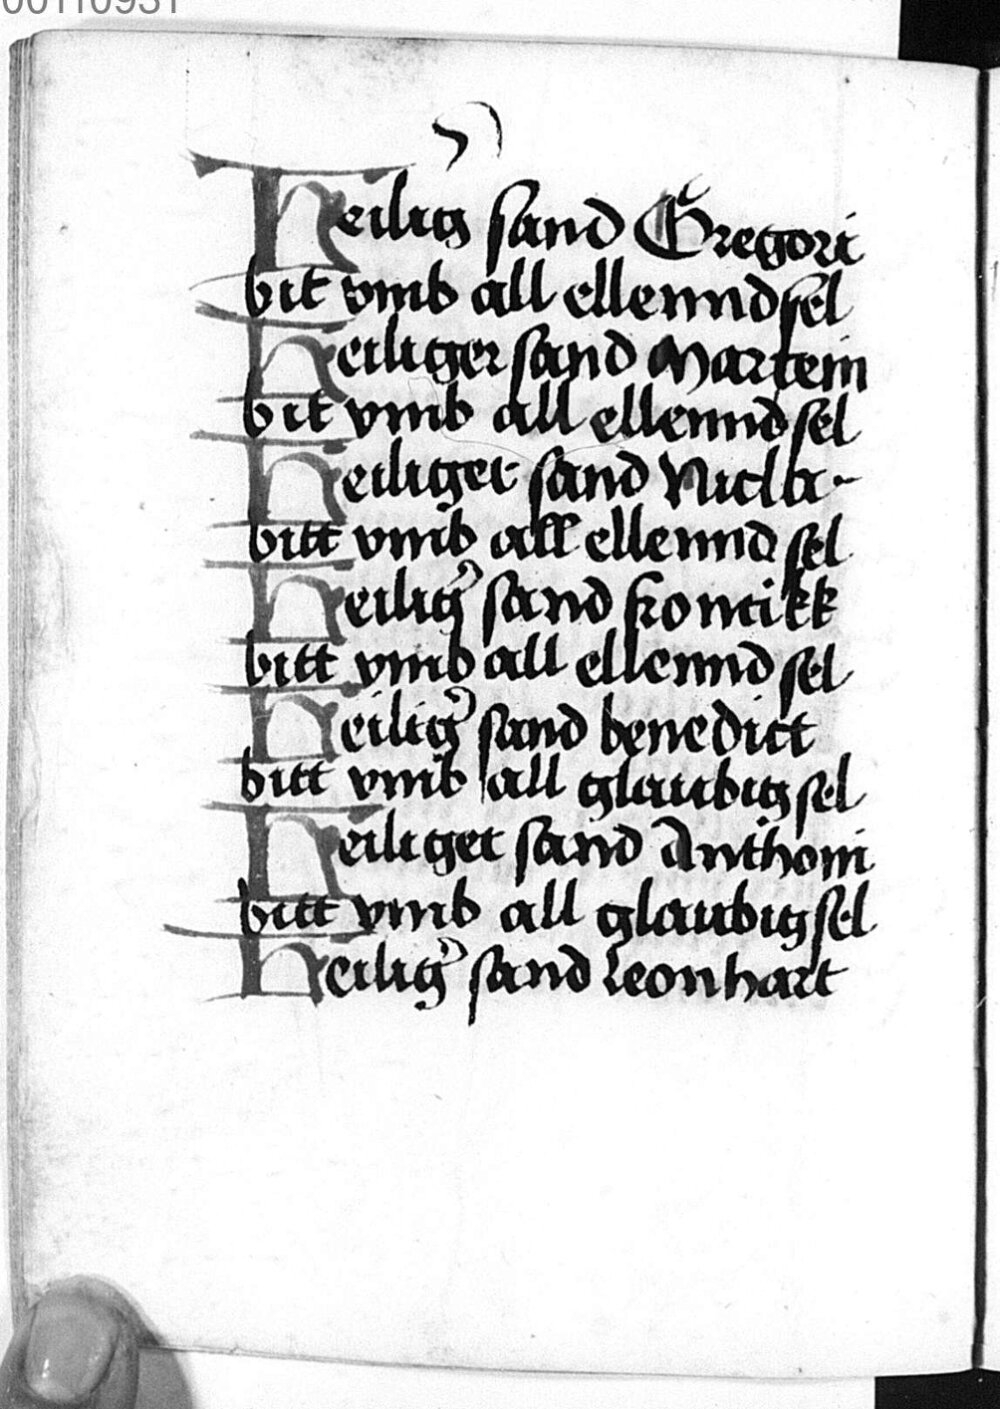 00110931
Heilig sand Gregori
bit vmb all ellennd sel
Heiliger sand Martein
bit vmb all ellennd sel
Heiliger sand Nicla
bitt vmb all ellennd sel
Heilig' sand
bitt vmb all ellennd sel
Heilig' sand benedict
bitt vmb all glaubig sel
Heiliger sand Anthoni
bitt vmb all glaubig sel
Heilig' sand leonhart